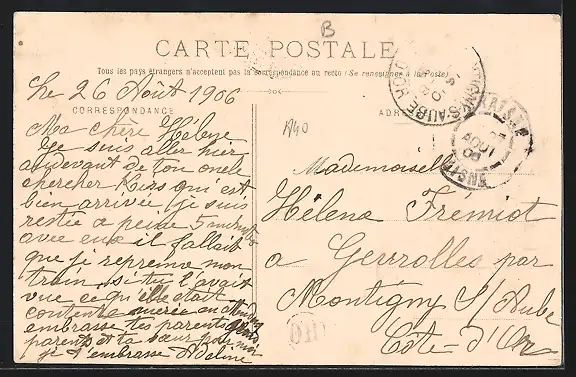 B
CARTE POSTALE
Tous les pays étrangers n'acceptent pas la correspondance au recto (Se renseigner à la Poste)
Le 26 Août 1906
CORRESPONDANCE
A40
Ma chère Hélène
Je suis aller hier
audevant de ton oncle
chercher qui est
bien arrivée je suis
restée a peine 5 minutes
avec eux il fallait
que je reprenne mon
train si tu l'avait
vue ce qu'elle était
contente en
embrasse tes parents
parents et ta sœur pour moi
je t'embrasse Adeline
Mademoiselle
Hélène Frémiot
a Gevrolles par
Montigny S/Aube
Côte-d'Or
MONTIGNY-S-AUBE
CÔTE D'OR
AOUT
06